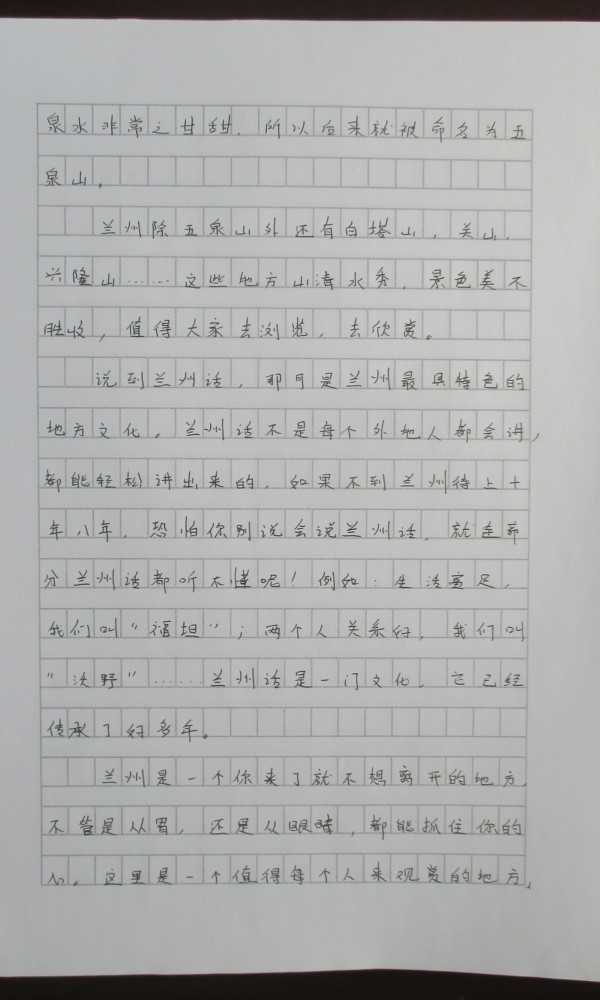 泉水非常之甘甜，所以后来就被命名为五
泉山。
兰州除五泉山外还有白塔山，关山，
兴隆山……这些地方山清水秀，景色美不
胜收，值得大家去浏览，去欣赏。
说到兰州话，那可是兰州最具特色的
地方文化。兰州话不是每个外地人都会讲，
都能轻松讲出来的，如果不到兰州待上十
年八年，恐怕你别说会说兰州话，就连部
分兰州话都听不懂呢！例如：生活富足，
我们叫“福坦”；两个人关系好，我们叫
“沃野”……兰州话是一门文化，它已经
传承了好多年。
兰州是一个你来了就不想离开的地方，
不管是从胃，还是从眼睛，都能抓住你的
心。这里是一个值得每个人来观赏的地方，